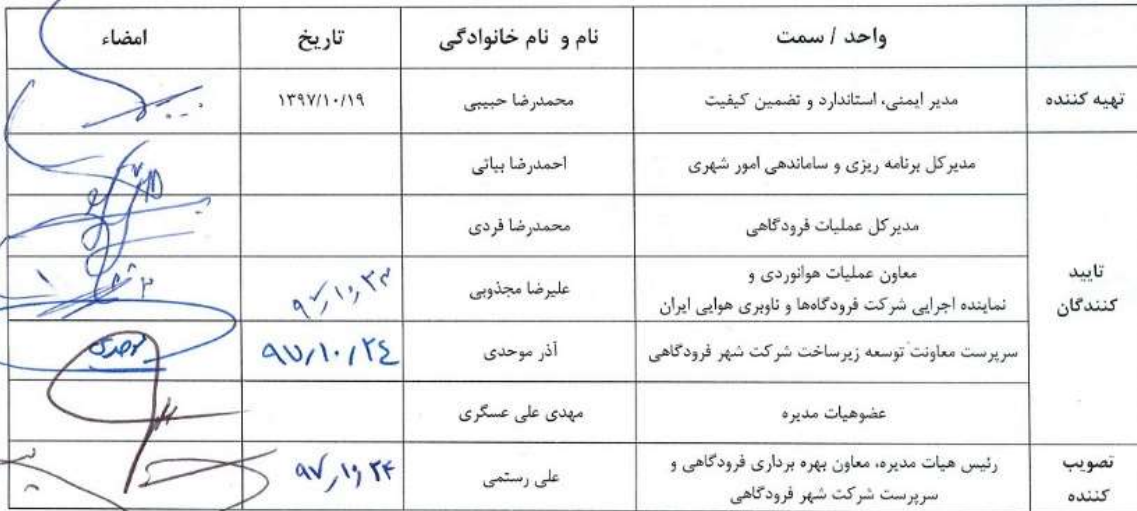 واحد / سمت نام و نام خانوادگی تاریخ امضاء
تهیه کننده مدیر ایمنی، استاندارد و تضمین کیفیت محمدرضا حبیبی ۱۳۹۷/۱۰/۱۹
تایید
کنندگان
مدیرکل برنامه ریزی و ساماندهی امور شهری احمدرضا بیاتی
مدیرکل عملیات فرودگاهی محمدرضا فردی
معاون عملیات هوانوردی و
نماینده اجرایی شرکت فرودگاه‌ها و ناوبری هوایی ایران
علیرضا مجذوبی
سرپرست معاونت توسعه زیرساخت شرکت شهر فرودگاهی آذر موحدی ۹۷/۱۰/۲٤
عضوهیات مدیره مهدی علی عسگری
تصویب
کننده
رئیس هیات مدیره، معاون بهره برداری فرودگاهی و
سرپرست شرکت شهر فرودگاهی
علی رستمی ۹۷/۱۰/۲۴